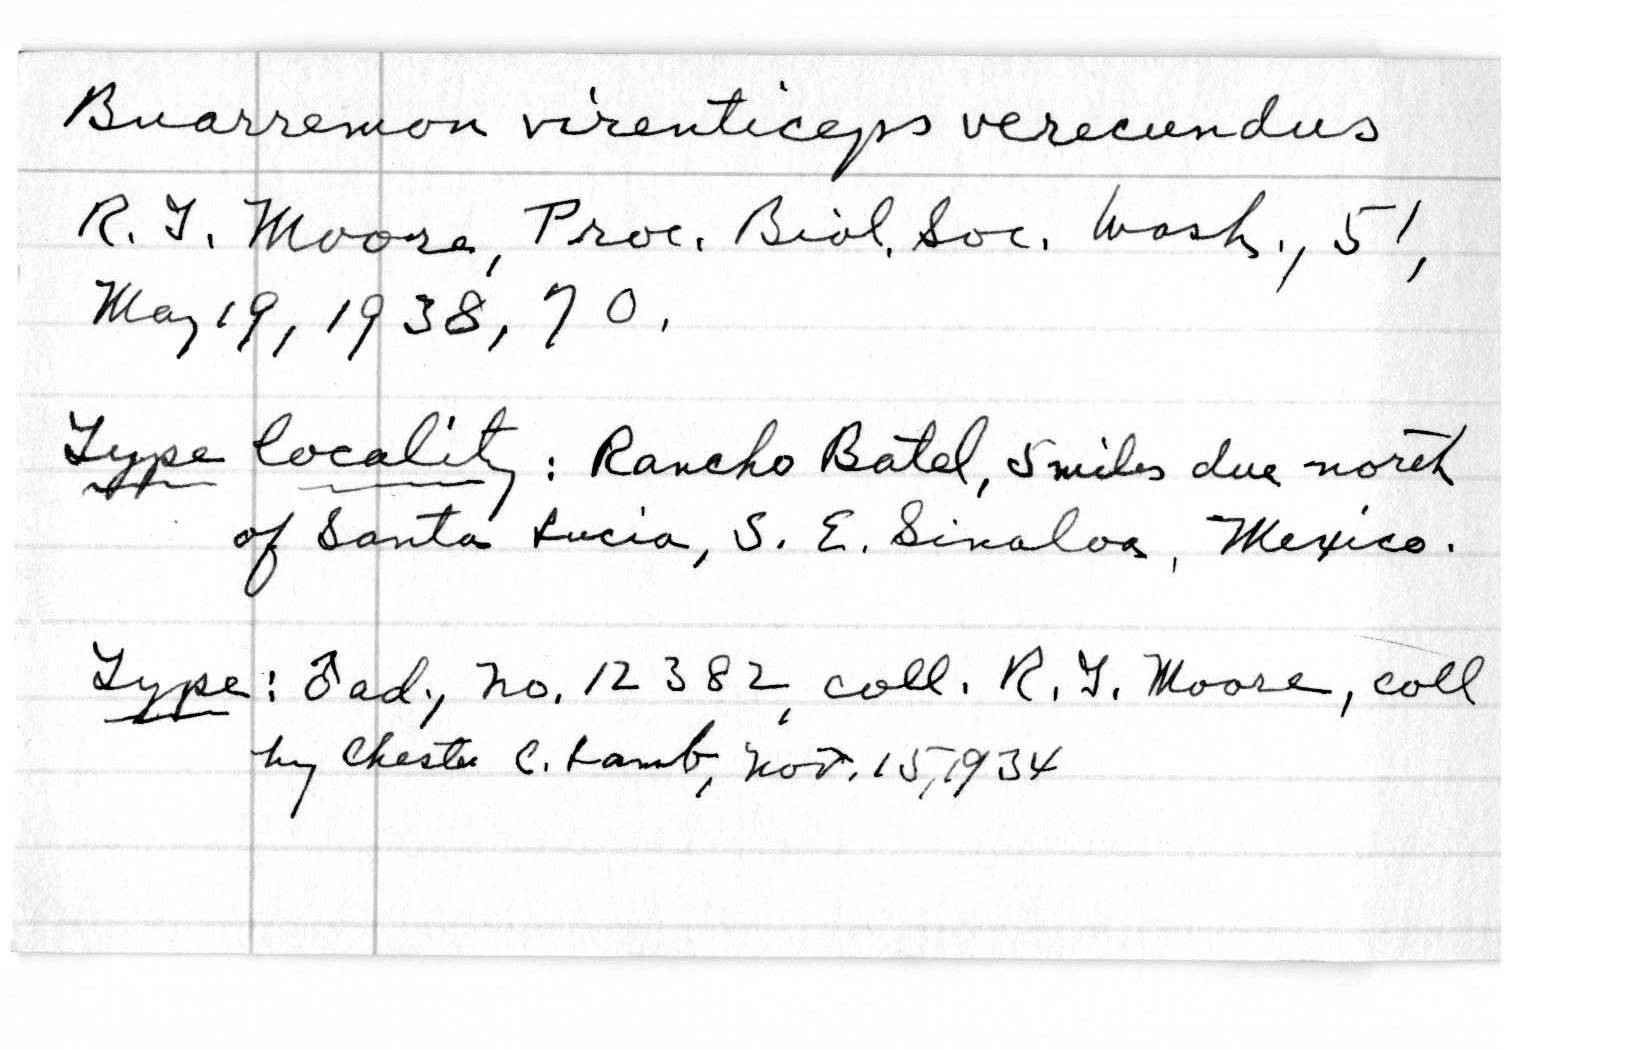 Buarremon virenticeps verecundus
R. T. Moore, Proc. Biol. Soc. Wash., 51,
May 19, 1938, 70.
Type locality: Rancho Batel, 5 miles due north
of Santa Lucia, S. E. Sinaloa, Mexico.
Type: ♂ ad., no. 12382, coll. R. T. Moore, coll
by Chester C. Lamb, Nov. 15, 1934